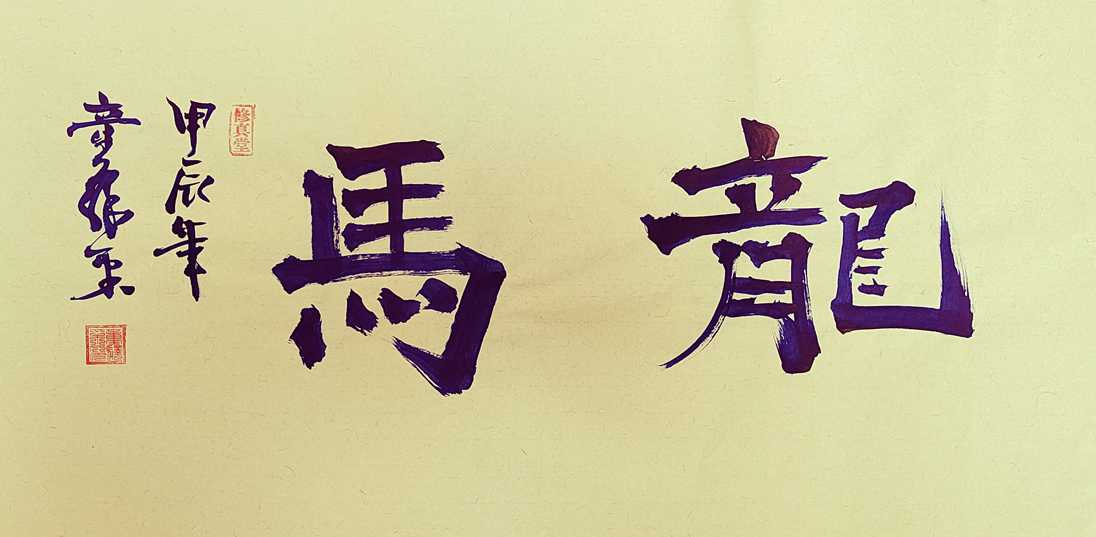 龍馬
修真堂
甲辰年